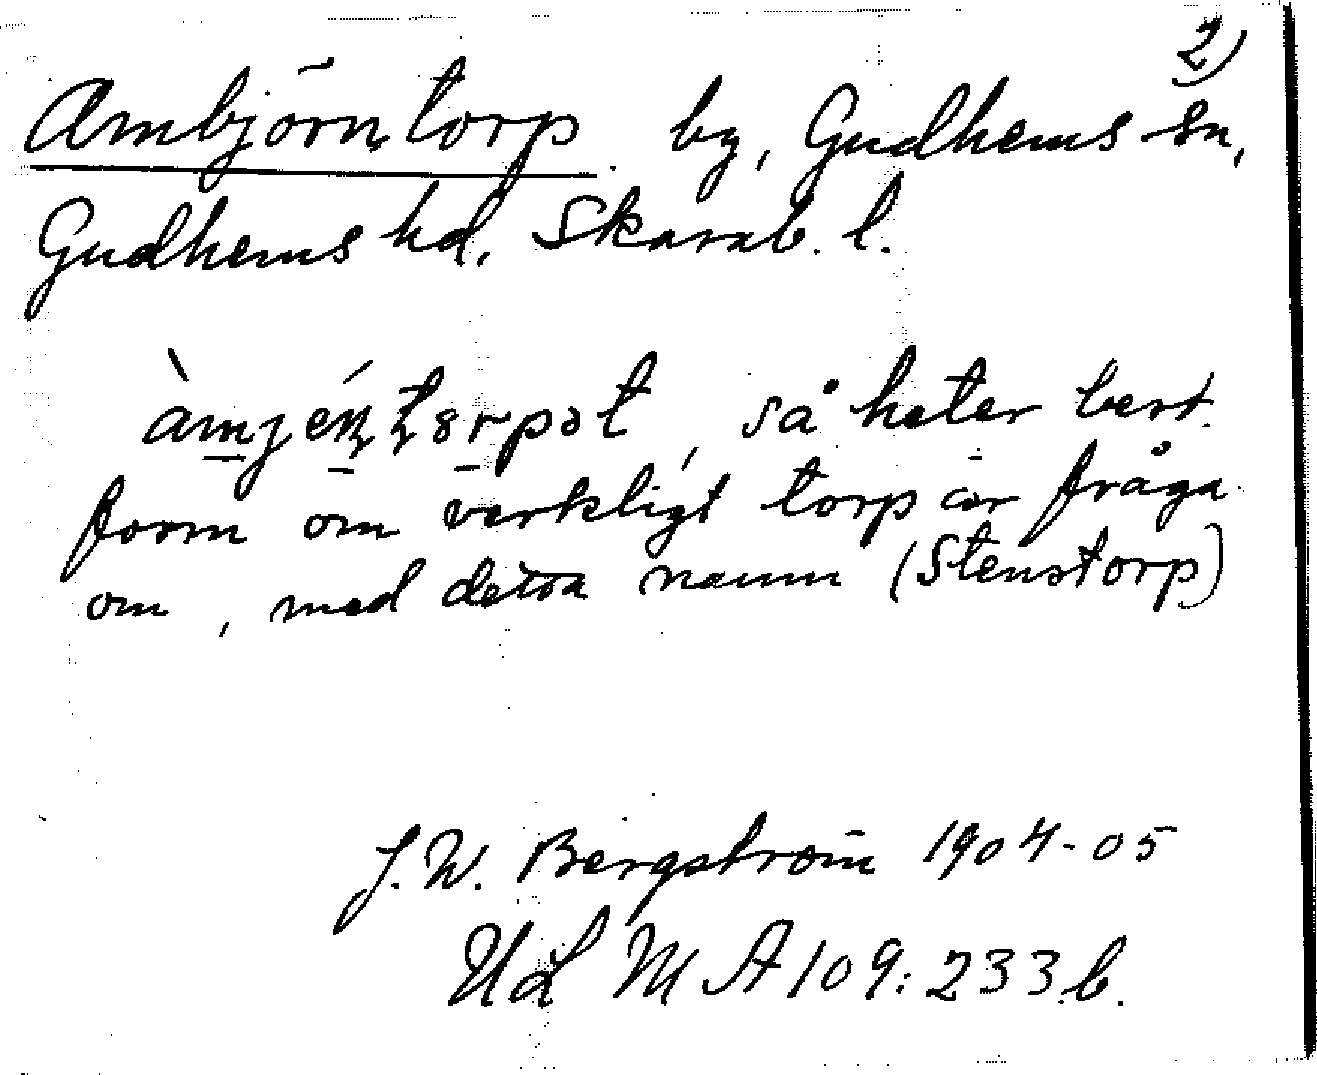 2)
Ambjörntorp by, Gudhems sn,
Gudhems hd, Skarab. l.
så heter best.
form om verkligt torp är fråga
om, med detta namn (Stenstorp)
J. W. Bergström 1904-05
M A 109:233.b.